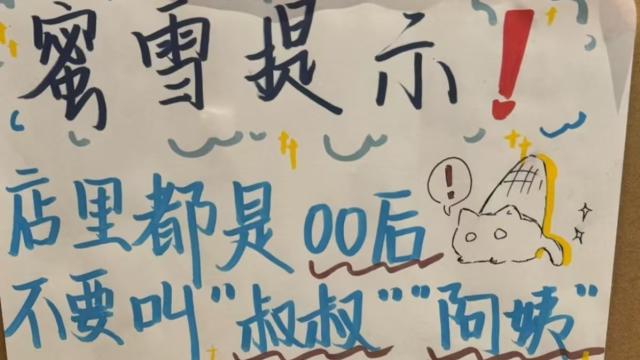 蜜雪提示!
!
店里都是00后
不要叫"叔叔""阿姨"